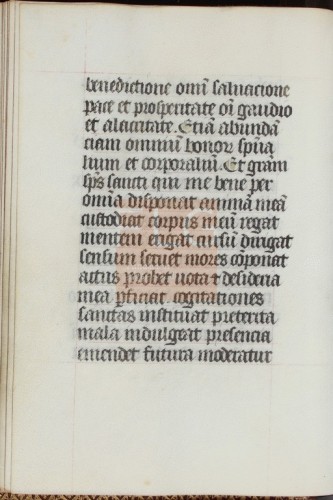 benedictione om̄i saluacione
pace et prosperitate oī gaudio
et alacritate. Etiā abundā
ciam omnium bonor sp̄ua
lium et corporaliū. Et grām
sp̄s sancti qui me bene per
omīa disponat animā meā
custodiat corpus meū regat
mentem erigat cursū dirigat
sensum seruet mores cōponat
actus probet uota ⁊ desideria
mea ꝑficiat cogitationes
sanctas instituat preterita
mala indulgeat presencia
emendet futura moderatur